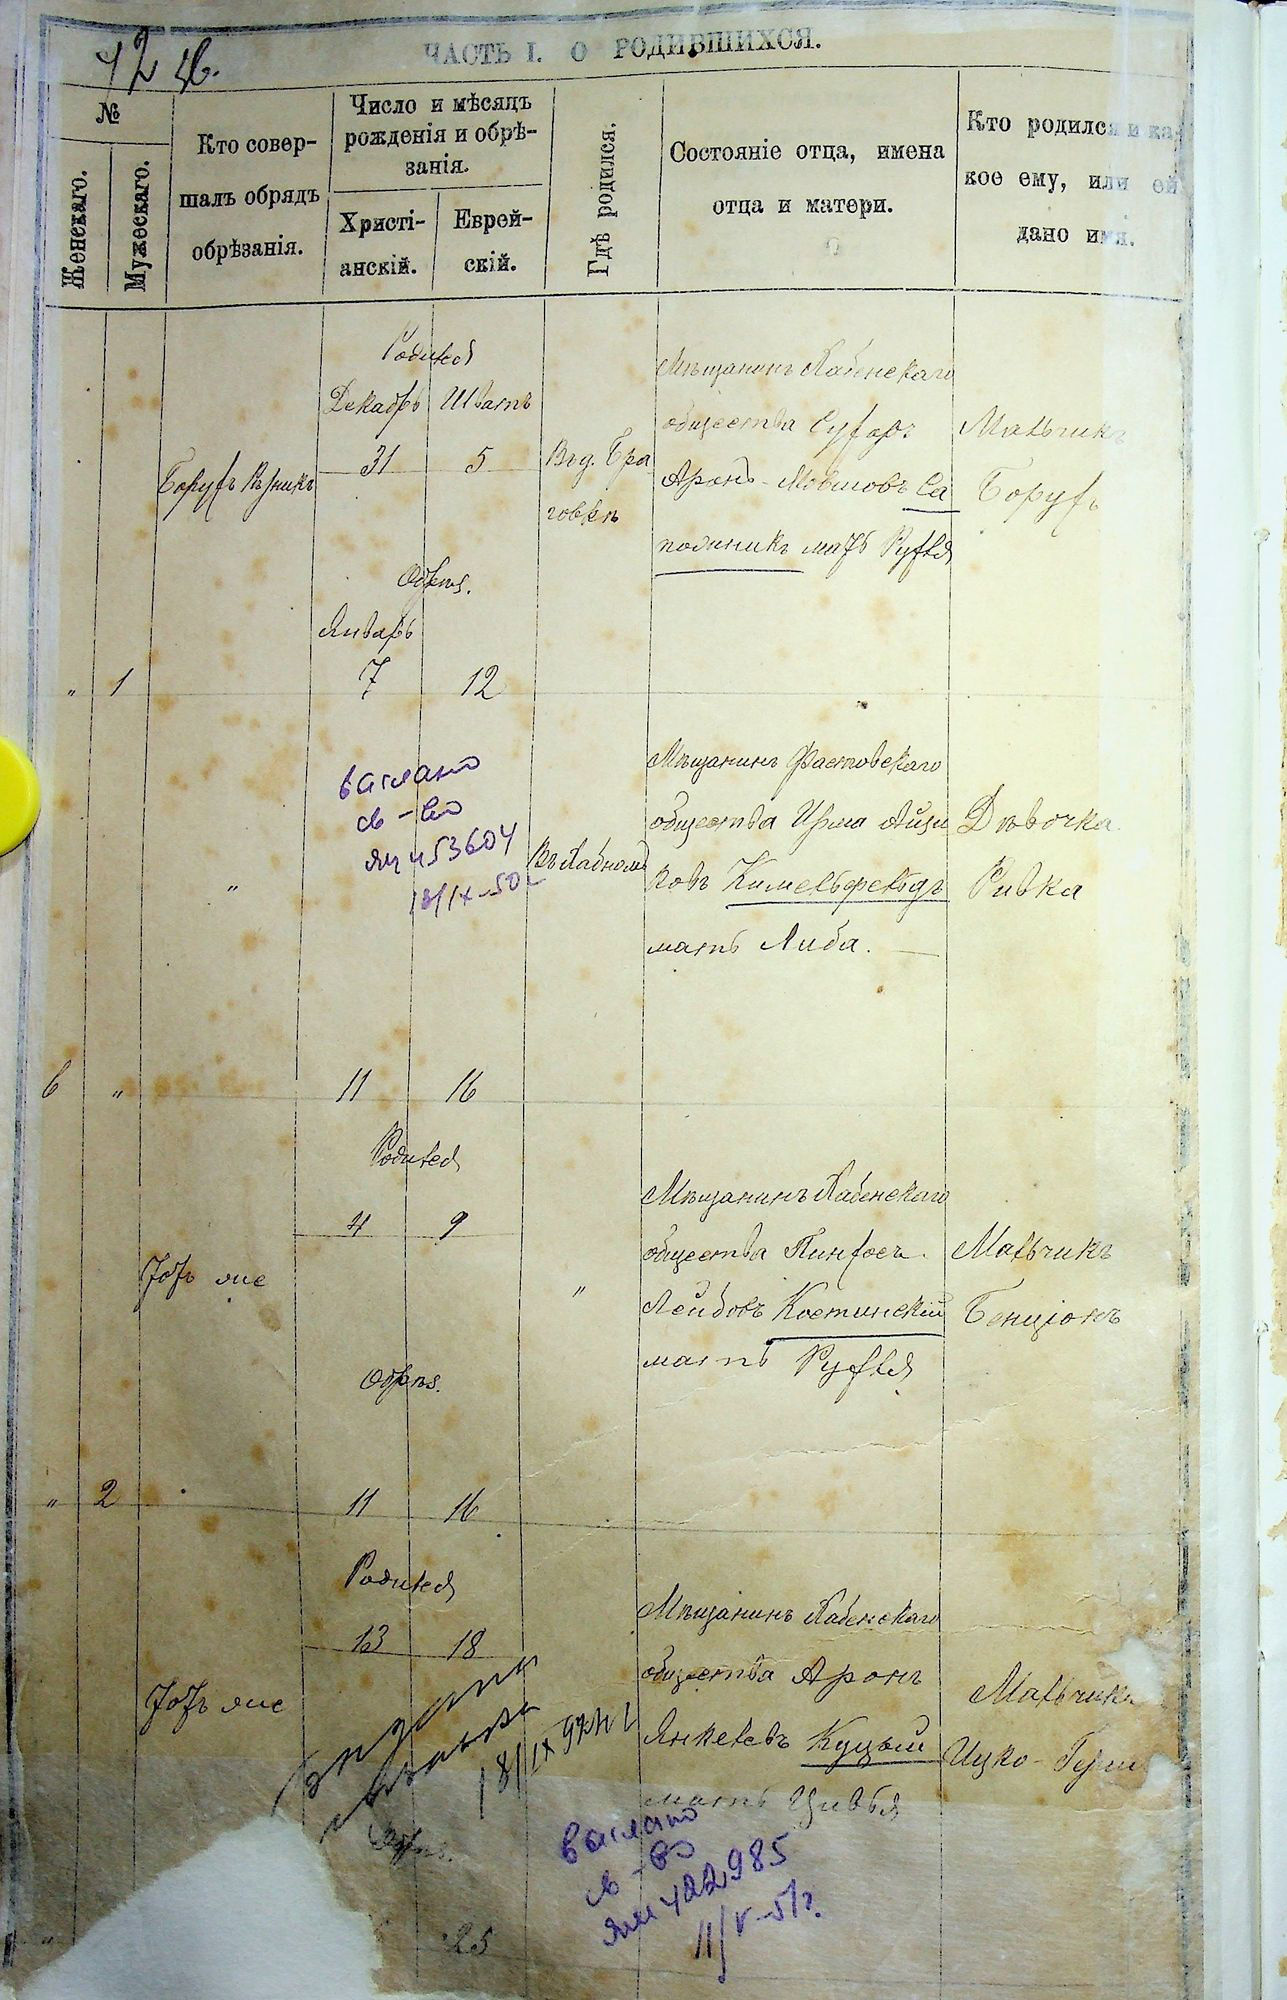 42 зв.
ЧАСТЬ I. О РОДИВШИХСЯ.
№
Женскаго.
Мужескаго.
Кто совер-
шалъ обрядъ
обрѣзанія.
Число и мѣсяцъ
рожденія и обрѣ-
занія.
Христі-
анскій.
Еврей-
скій.
Гдѣ родился.
Состояніе отца, имена
отца и матери.
Кто родился и ка-
кое ему, или ей
дано имя.
" 1
Борухъ Рѣзникъ
Родился
Декабрь Шватъ
31 5
Обрѣз.
Январь
7 12
Въ д. Бра
говкѣ
Мѣщанинъ Кабенскаго
общества Сухоръ
Аронъ-Мовшовъ Са
полникъ мать Рухля
Мальчикъ
Борухъ
"
видано
св-во
ЯЧ 453604
18/IX-50г
11 16
Въ Кабномъ
Мѣщанинъ Фастовскаго
общества Ирма Айзи
ковъ Кимельфельдъ
мать Либа.
Дѣвочка
Ривка
"
Тотъ же
Родился
4 9
Обрѣз.
11 16
"
Мѣщанинъ Кабенскаго
общества Пинхосъ
Лейбовъ Костинскій
мать Рухля
Мальчикъ
Бенціонъ
" 2
Тотъ же
Родился
13 18
Обрѣз.
25
Мѣщанинъ Кабенскаго
общества Аронъ
Янкелевъ Куцый
мать Цивья
Мальчикъ
Ицко-Герш
видано
св-во
ЯМ 422985
11/V-51г.